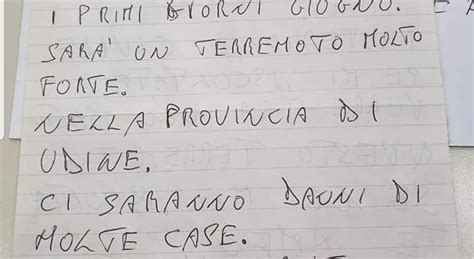 I PRIMI GIORNI GIOGNO.
SARA' UN TERREMOTO MOLTO
FORTE.
NELLA PROVINCIA DI
UDINE.
CI SARANNO DAUNI DI
MOLTE CASE.